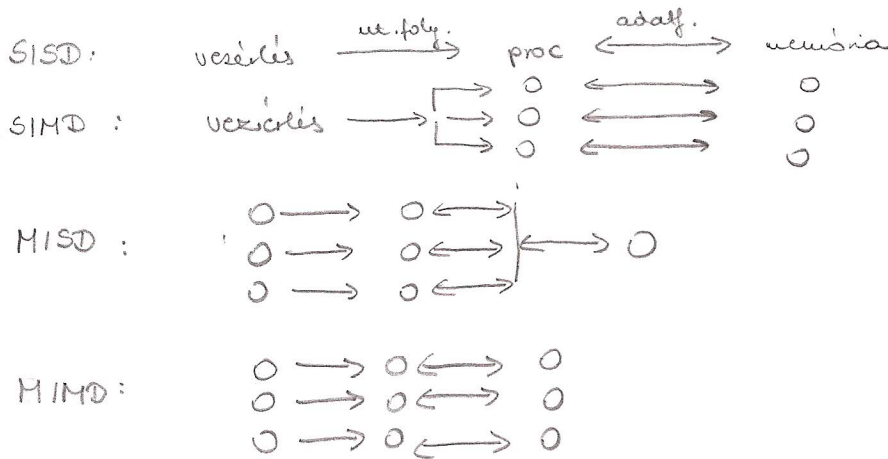 SISD: vezérlés ut.foly. proc adatf. memória
SIMD: vezérlés
MISD:
MIMD: